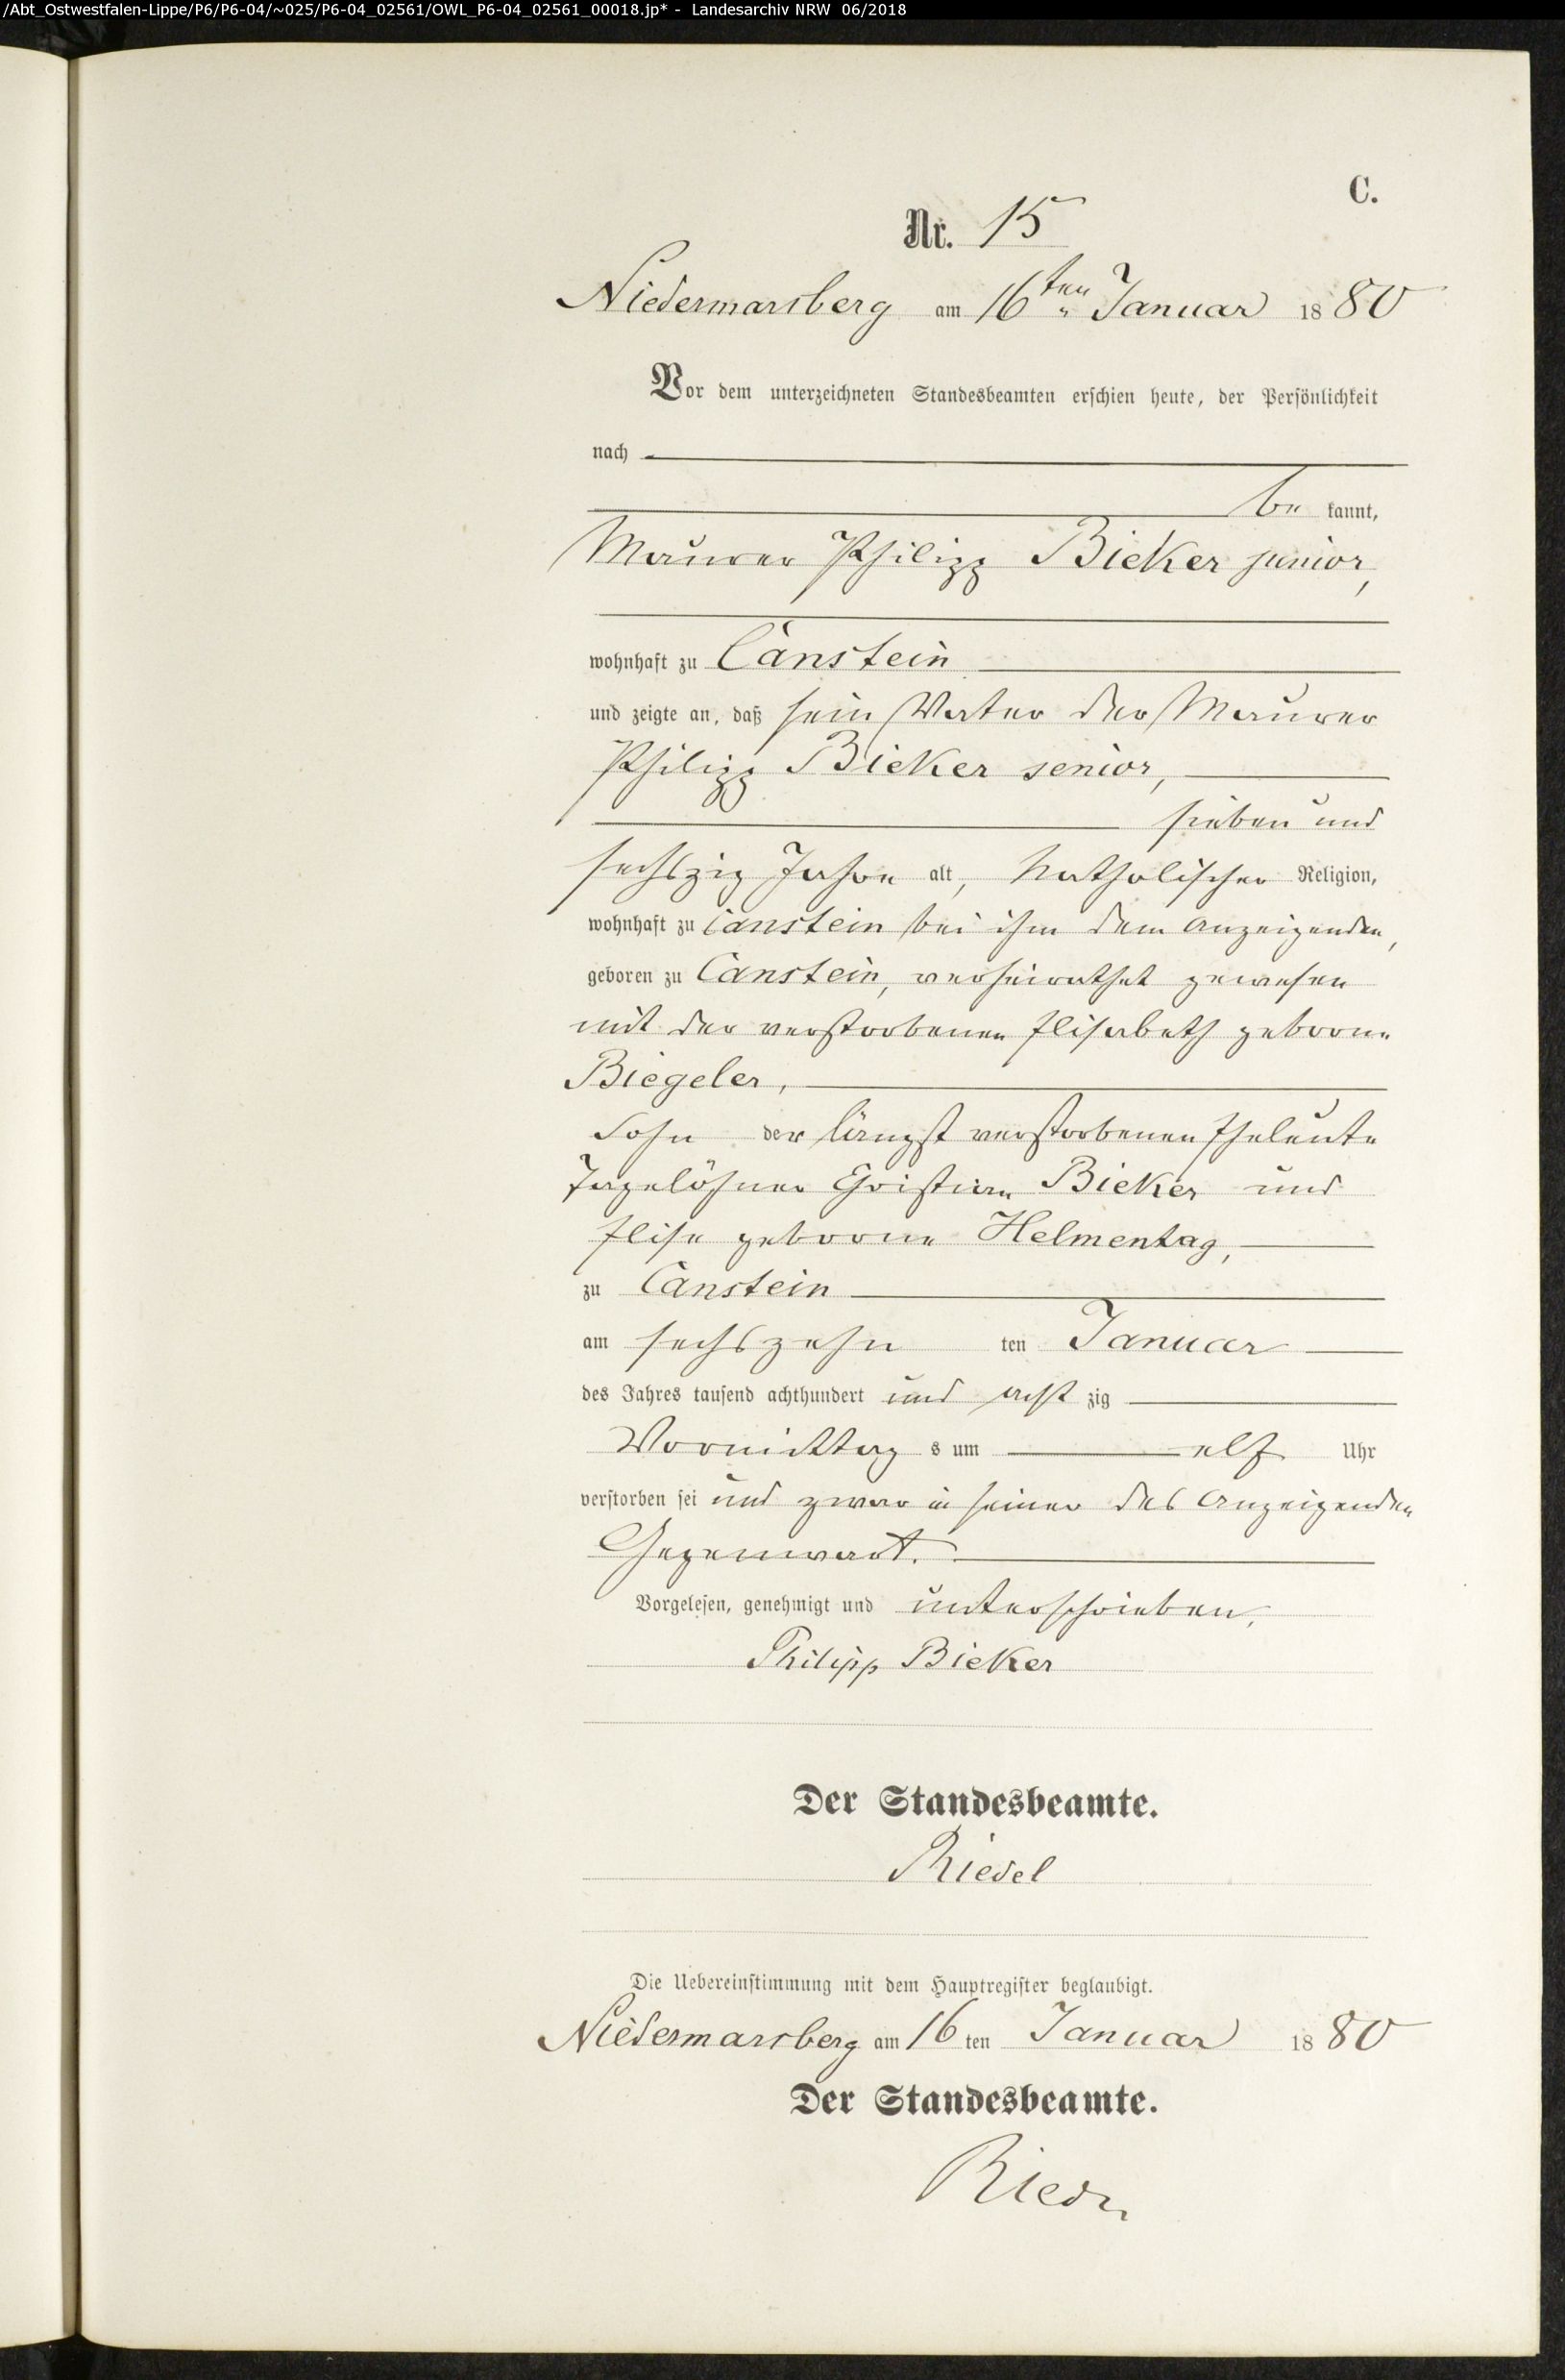 /Abt_Ostwestfalen-Lippe/P6/P6-04/~025/P6-04_02561/OWL_P6-04_02561_00018.jp* - Landesarchiv NRW 06/2018
C.
Nr. 15
Niedermarsberg am 16ten Januar 1880
Vor dem unterzeichneten Standesbeamten erschien heute, der Persönlichkeit
nach
be kannt,
Maurer Philipp Bieker junior,
wohnhaft zu Canstein
und zeigte an, daß sein Vater der Maurer
Philipp Bieker senior,
sieben und
sechszig Jahre alt, katholischer Religion,
wohnhaft zu Canstein bei ihm dem Anzeigenden,
geboren zu Canstein, verheirathet gewesen
mit der verstorbenen Elisabeth geborne
Biegeler,
Sohn der längst verstorbenen Eheleute
Tagelöhner Christian Bieker und
Elise geborne Helmentag,
zu Canstein
am sechszehn ten Januar
des Jahres tausend achthundert und acht zig
Vormittag s um elf Uhr
verstorben sei und zwar in seiner des Anzeigenden
Gegenwart.
Vorgelesen, genehmigt und unterschrieben,
Philipp Bieker
Der Standesbeamte.
Riedel
Die Uebereinstimmung mit dem Hauptregister beglaubigt.
Niedermarsberg am 16 ten Januar 1880
Der Standesbeamte.
Riedel